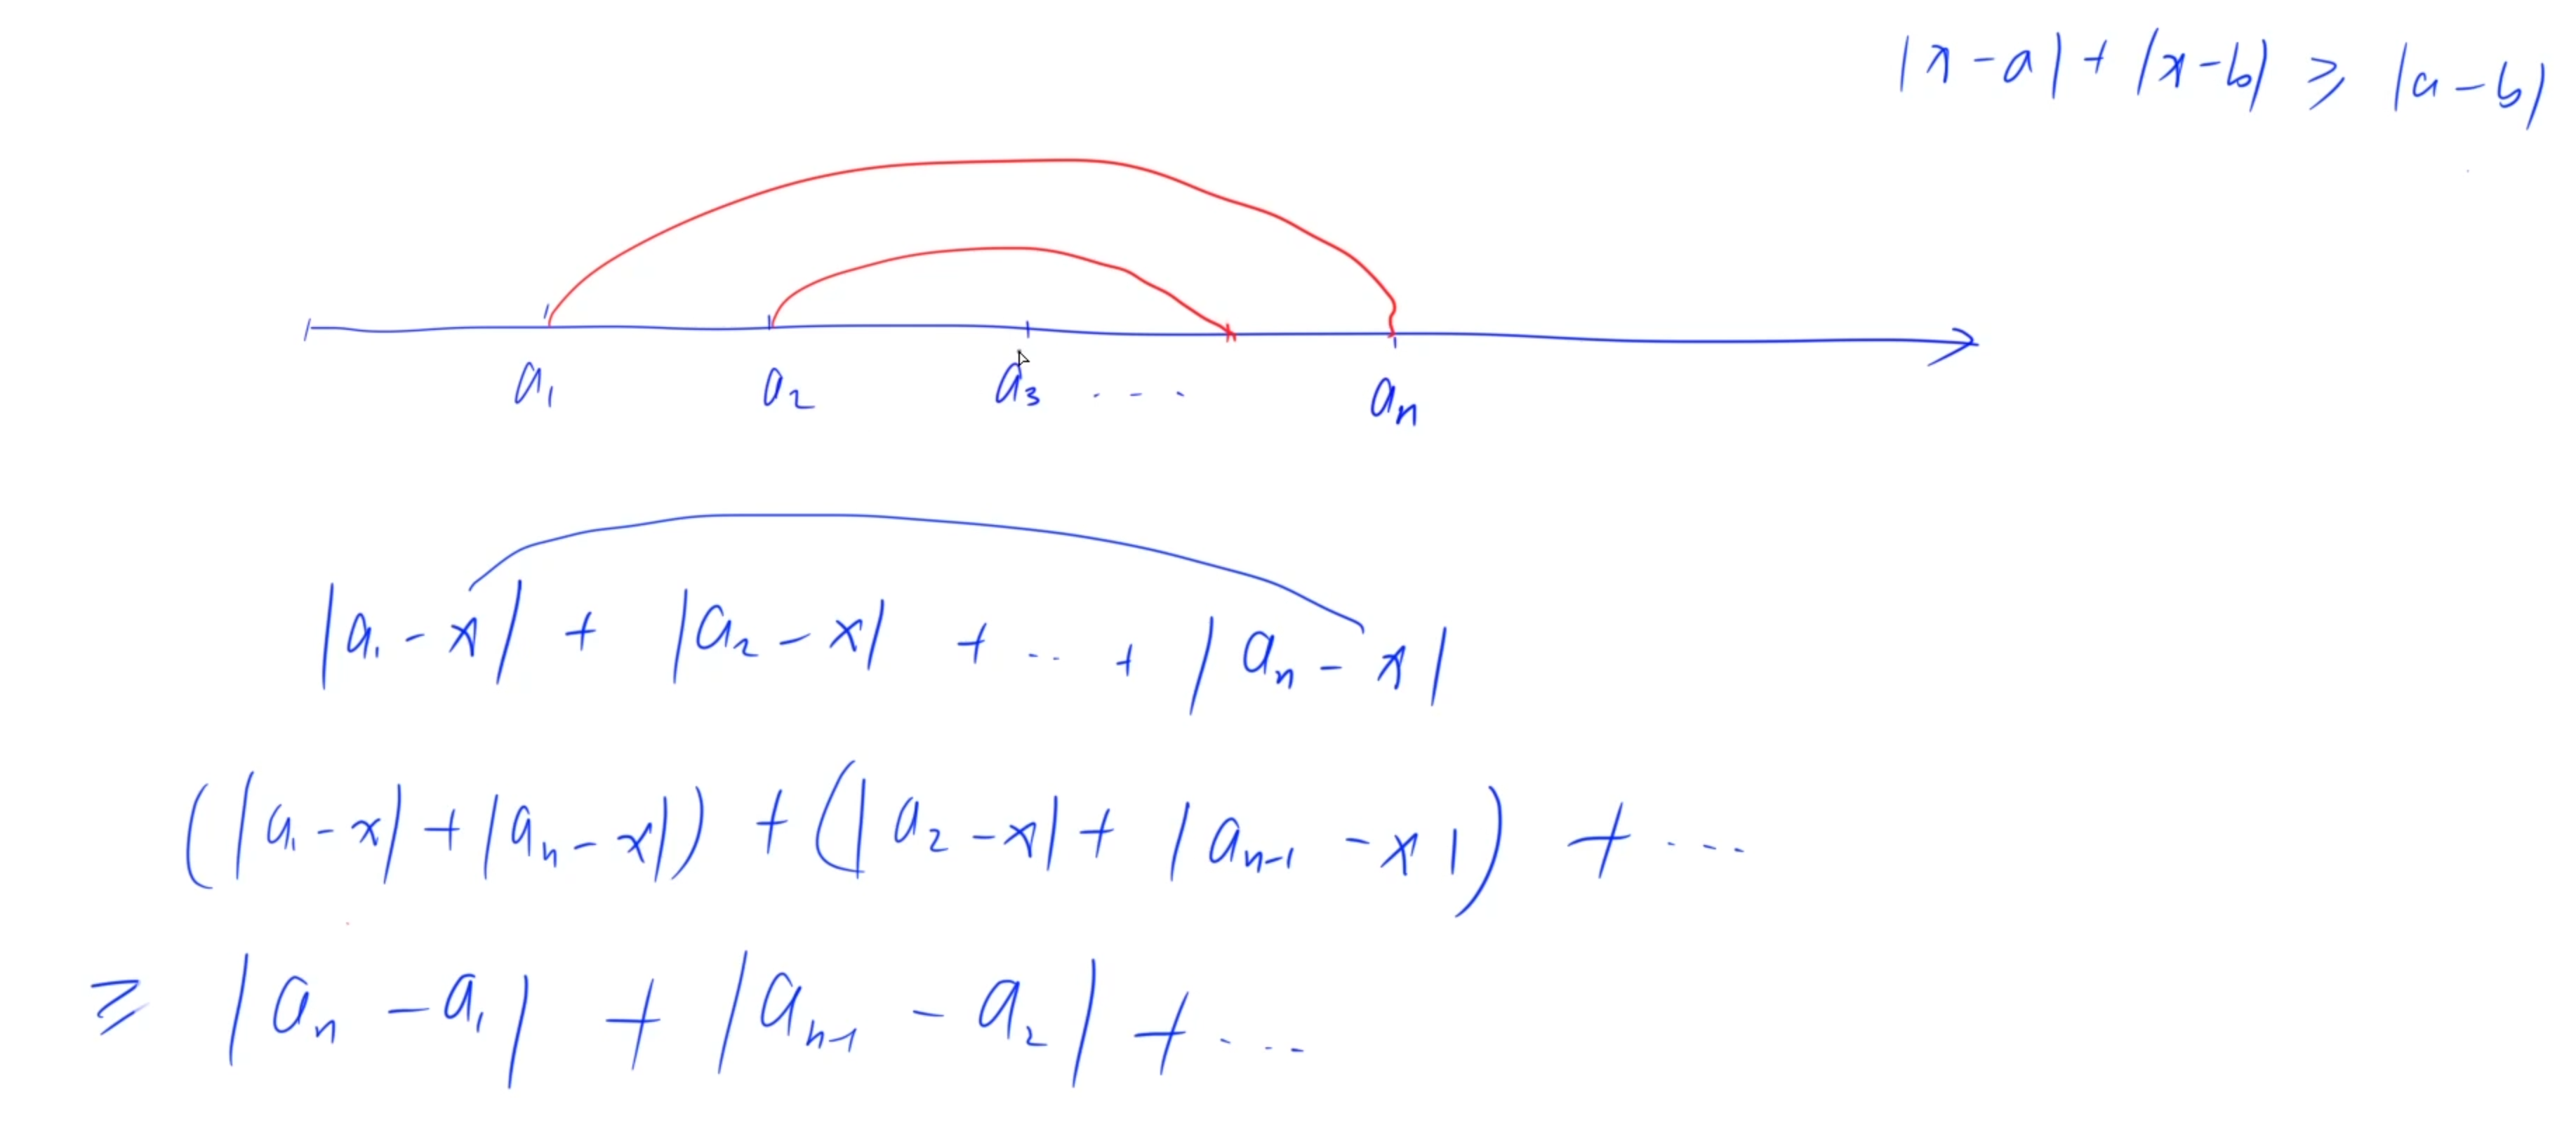 |x-a| + |x-b| ≥ |a-b|
a₁ a₂ a₃ .... aₙ
|a₁-x| + |a₂-x| + ... + |aₙ-x|
(|a₁-x|+|aₙ-x|) + (|a₂-x|+|aₙ₋₁-x|) + ...
≥ |aₙ-a₁| + |aₙ₋₁-a₂| + ...